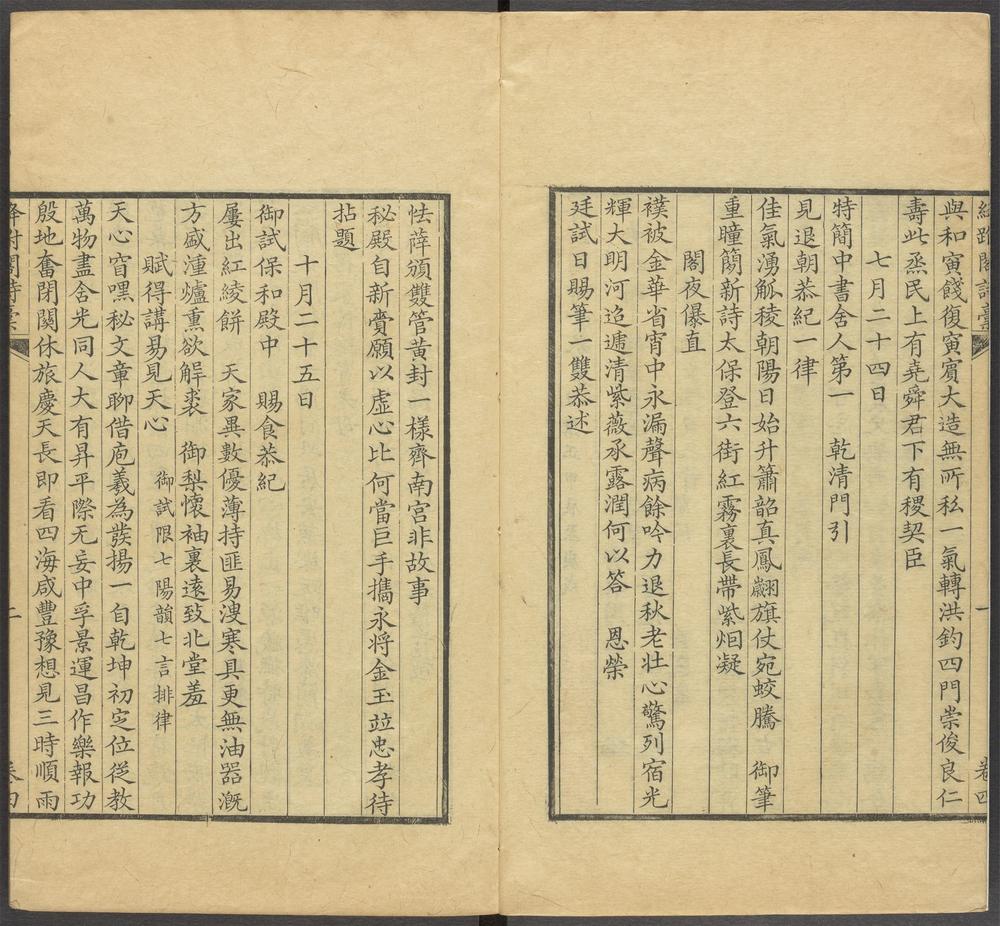 與和寅餞復寅賓大造無所私一氣轉洪鈞四門崇俊良仁
壽此烝民上有堯舜君下有稷契臣
七月二十四日
特簡中書舍人第一 乾清門引
見退朝恭紀一律
佳氣湧觚稜朝陽日始升簫韶真鳳翽旗仗宛蛟騰 御筆
重瞳簡新詩太保登六街紅霧裏長帶紫烟凝
閣夜儤直
襆被金華省宵中永漏聲病餘吟力退秋老壯心驚列宿光
輝大明河迢遞清紫薇承露潤何以答 恩榮
廷試日賜筆一雙恭述
怯薛頒雙管黃封一樣齊南宮非故事
秘殿自新賫願以虛心比何當巨手攜永將金玉竝忠孝待
拈題
十月二十五日
御試保和殿中 賜食恭紀
屢出紅綾餅 天家異數優薄持匪易溲寒具更無油器溉
方盛湩爐熏欲解裘 御梨懷袖裏遠致北堂羞
賦得講易見天心 御試限七陽韻七言排律
天心窅嘿秘文章聊借庖羲為發揚一自乾坤初定位從教
萬物盡含光同人大有昇平際无妄中孚景運昌作樂報功
殷地奮閉關休旅慶天長即看四海咸豐豫想見三時順雨
二
卷四